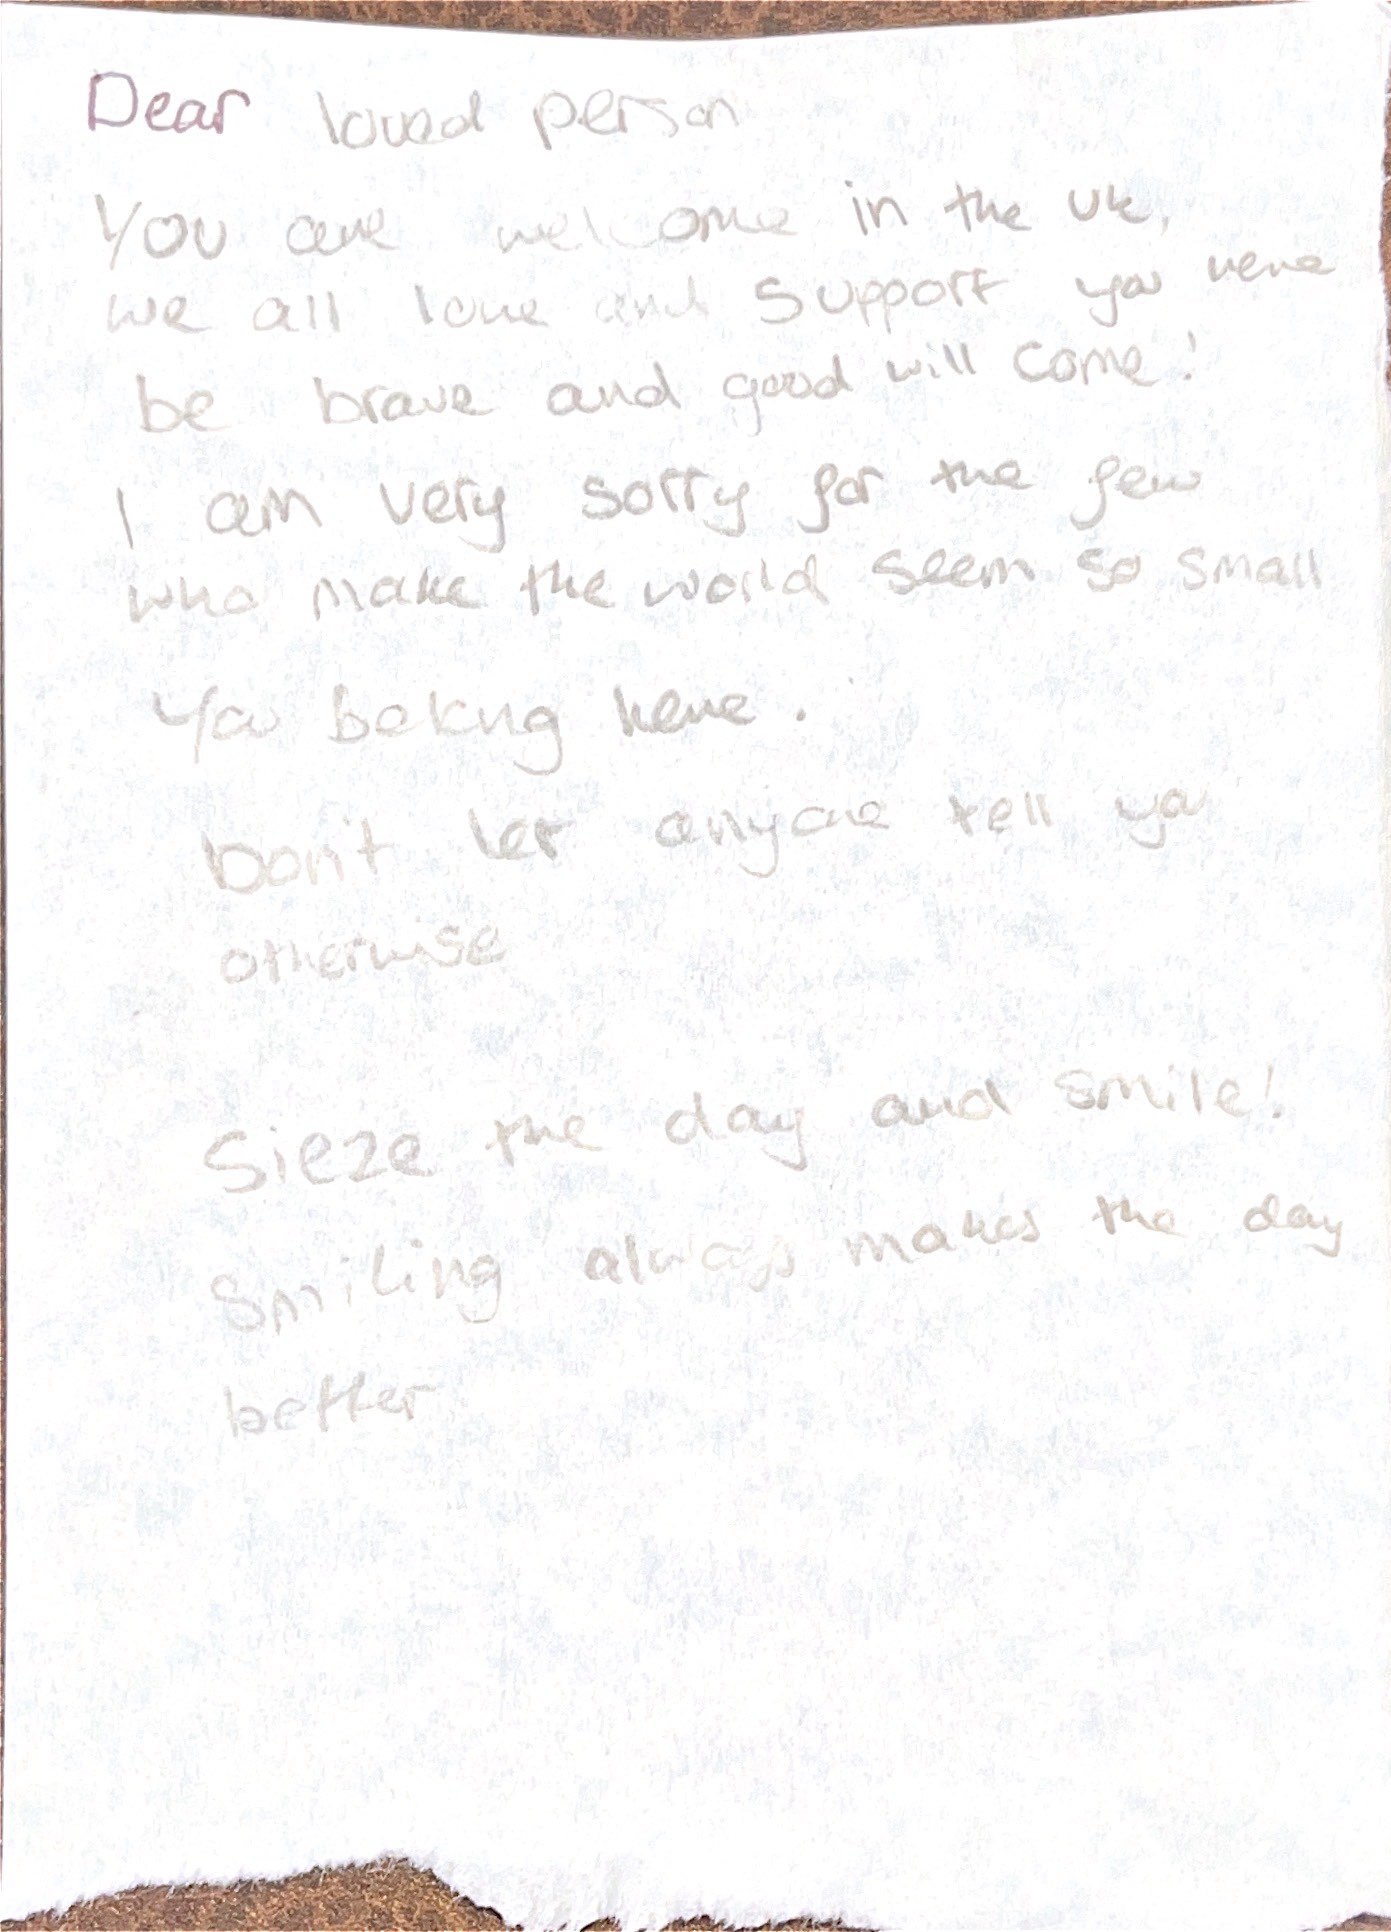 Dear loved person
You are welcome in the UK,
we all love and support you here
be brave and good will come!
I am very sorry for the few
who make the world seem so small
You belong here.
Don't let anyone tell you
otherwise
Sieze the day and smile!
Smiling always makes the day
better